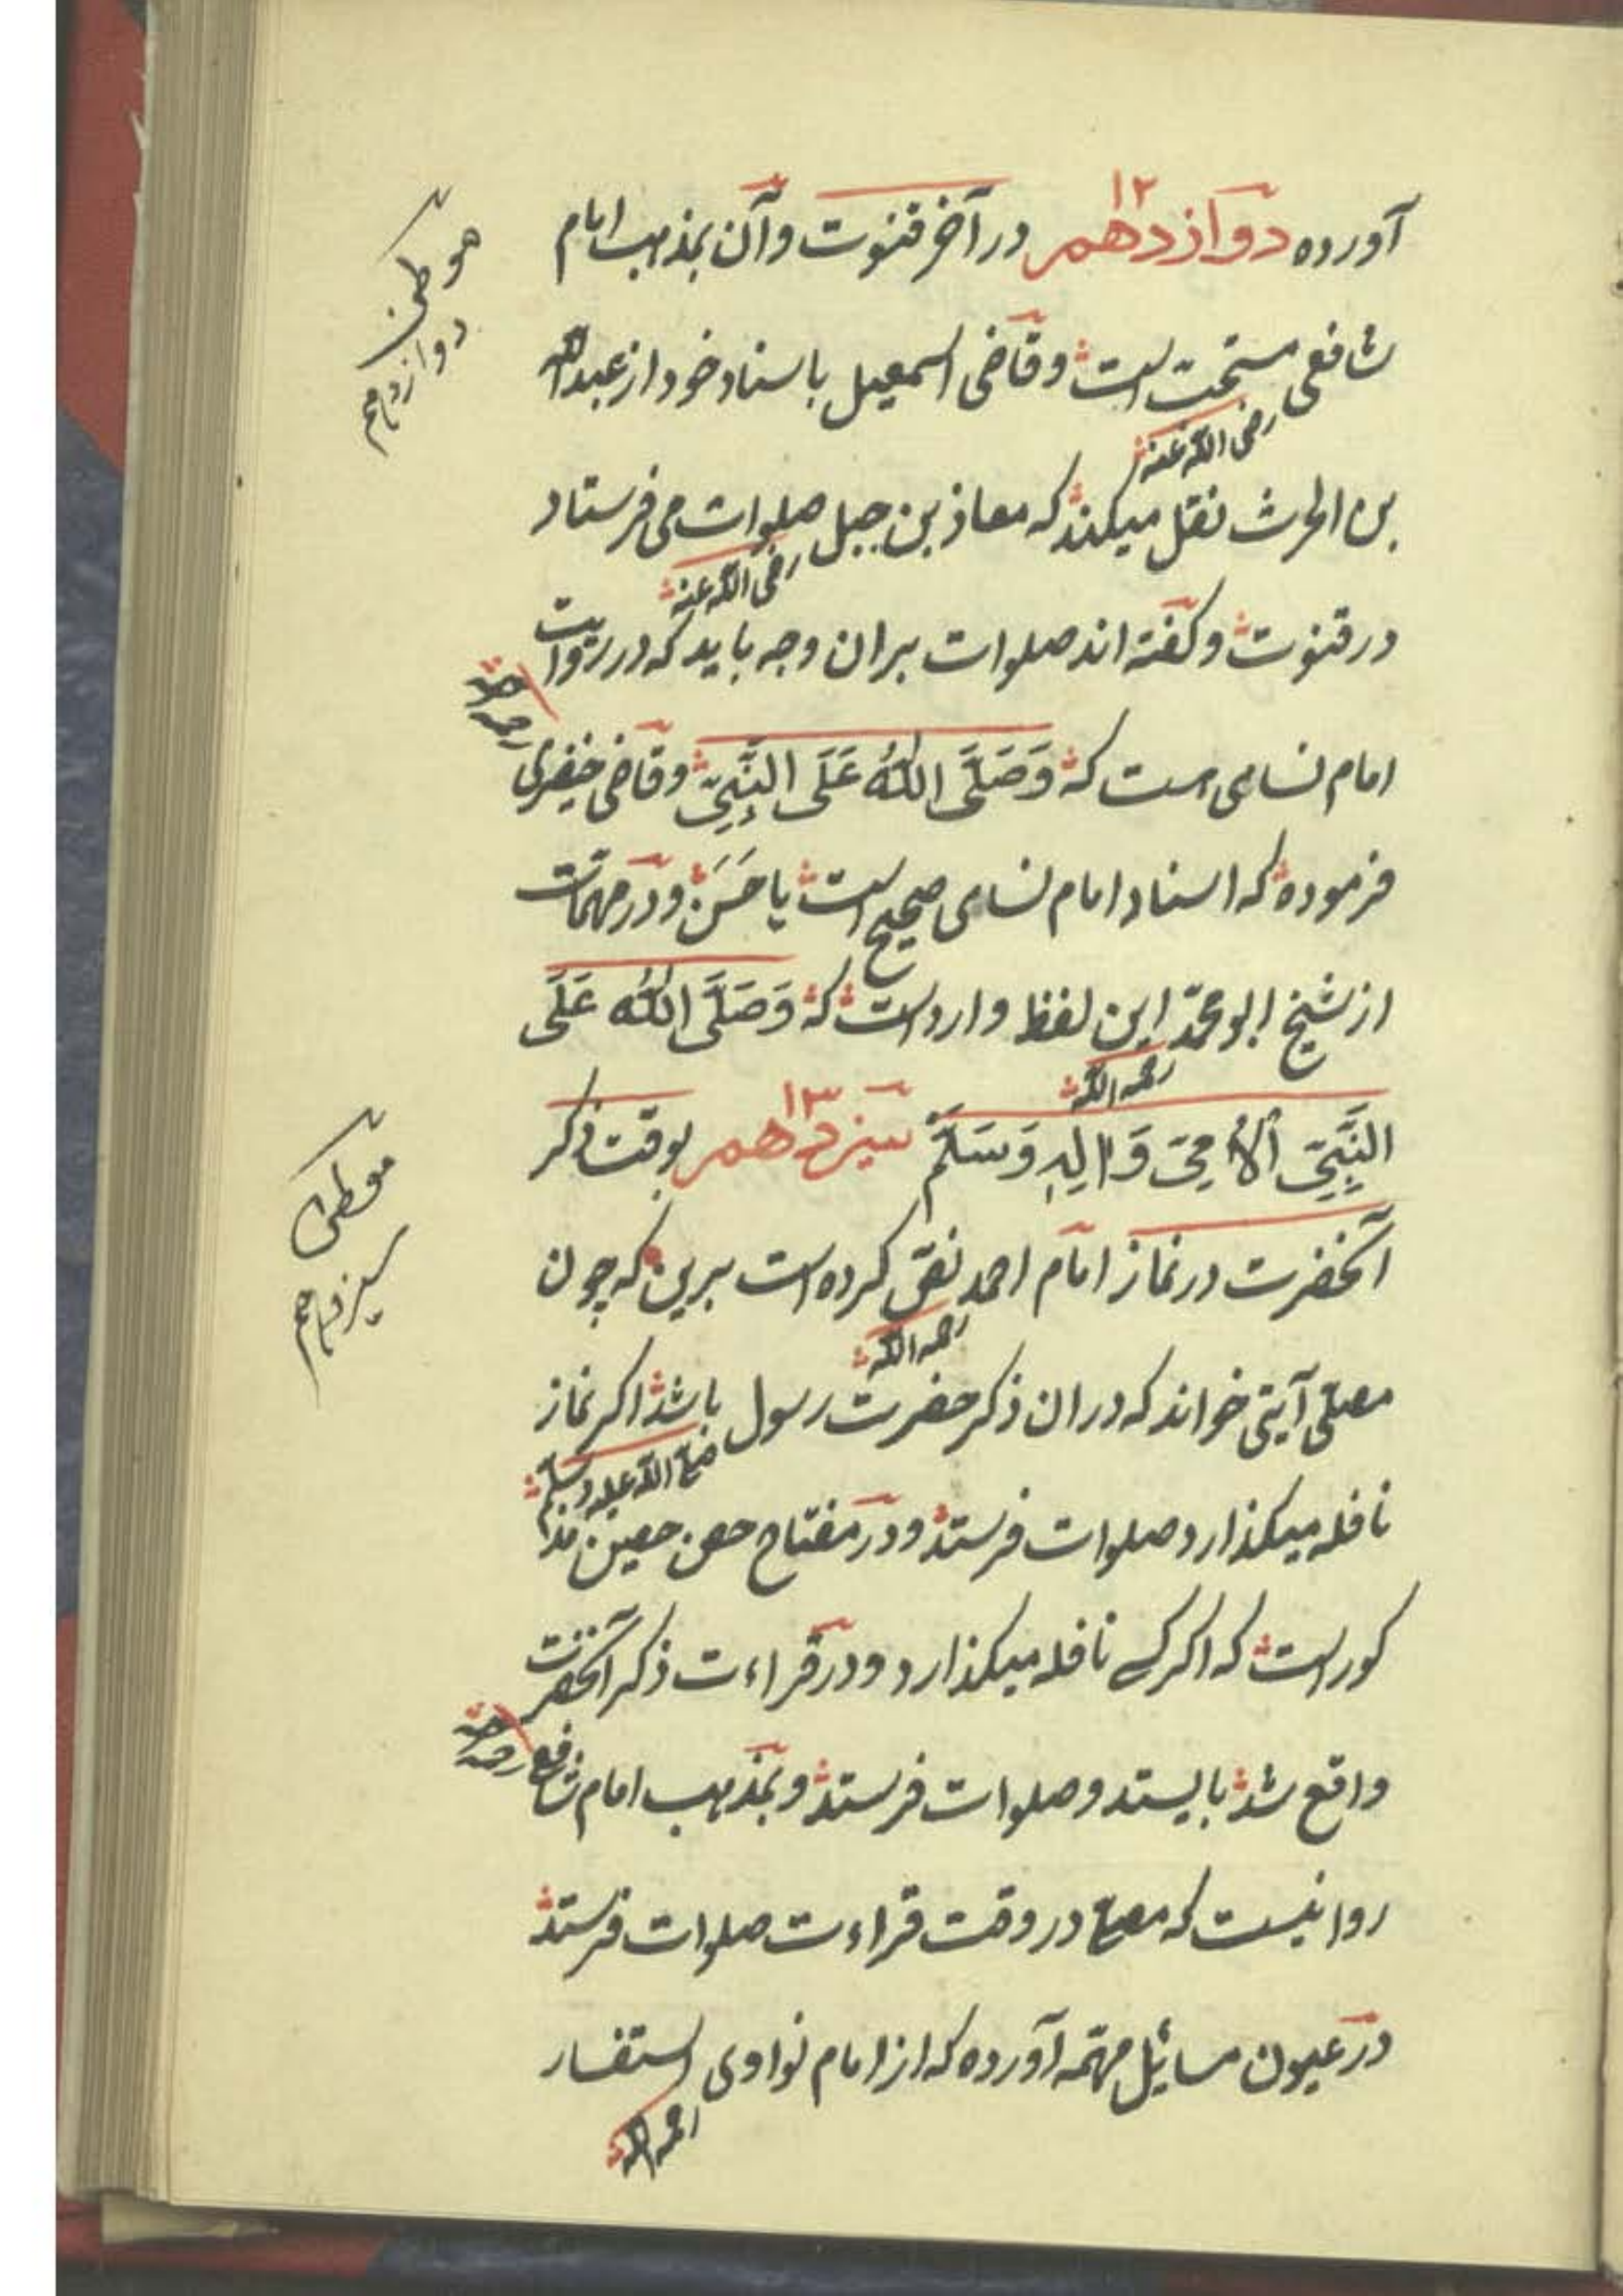 آورده دوازدهم ۱۲ در آخر قنوت وآن بمذهب امام
موطن دوازدهم
شافعی مستحبّ است وقاضی اسمعیل باسناد خود از عبدالله
رضی الله عنه
بن الحرث نقل میکند که معاذ بن جبل صلوات می فرستاد
رضی الله عنه
در قنوت وکفته اند صلوات بران وجه باید که در روایت
امام نسای است که وَصَلَّی اللّٰهُ عَلَی النَّبِیِّ وقاضی خیضری
رحمه الله
فرموده که اسناد امام نسای صحیح است یا حَسَن ودر مهمّات
از شیخ ابو محمّد این لفظ وارد است که وَصَلَّی اللّٰه عَلَی
رحمه الله
النَّبِیِّ الْاُمِّیِّ وَاٰلِهٖ وَسَلَّمْ سیزدهم ۱۳ بوقت ذکر
موطن سیزدهم
آنحضرت در نماز امام احمد نصّ کرده است برین که چون
رحمه الله
مصلّی آیتی خواند که دران ذکر حضرت رسول باشد اکر نماز
صلی الله علیه وسلم
نافله میکذارد صلوات فرستد ودر مفتاح حصن حصین مذ
کور است که اکر کسی نافله میکذارد ودر قراءت ذکر آنحضرت
واقع شد بایستد وصلوات فرستد وبمذهب امام شافعی
رحمه الله
روا نیست که مصلی در وقت قراءت صلوات فرستد
در عیون مسائل مهمّه آورده که از امام نواوی استفسار
رحمه الله